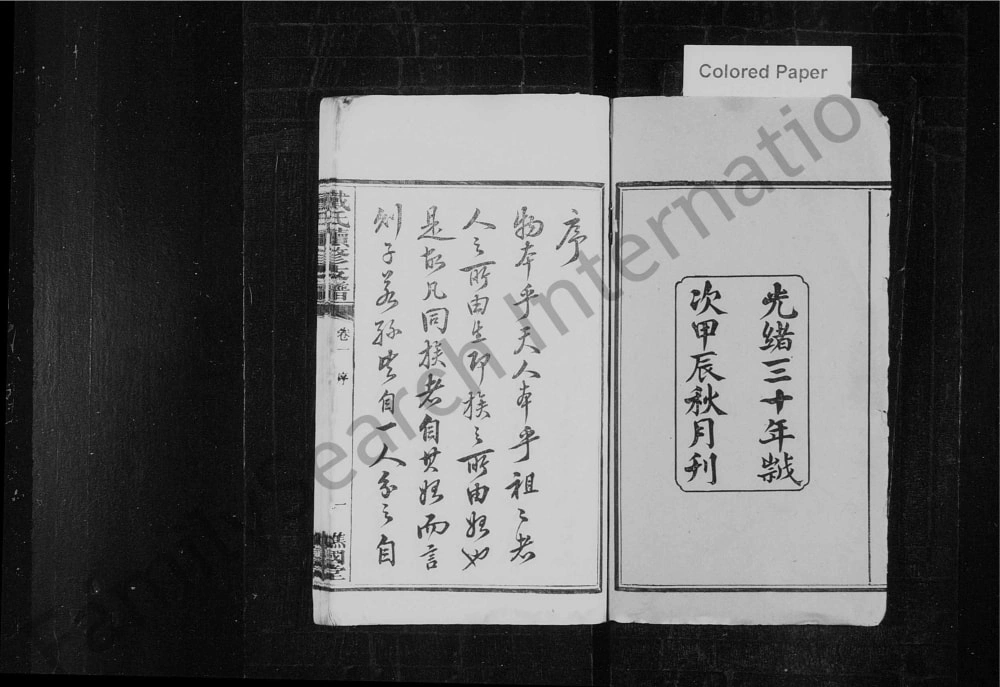 Colored Paper
光緒三十年歲
次甲辰秋月刊
序
物本乎天人本乎祖〻者
人之所由生即族之所由始也
是故凡同族者自其始而言
則子若孫皆自一人分之自
戴氏續修支譜
卷一
序
一
譙國堂
earch Internatio